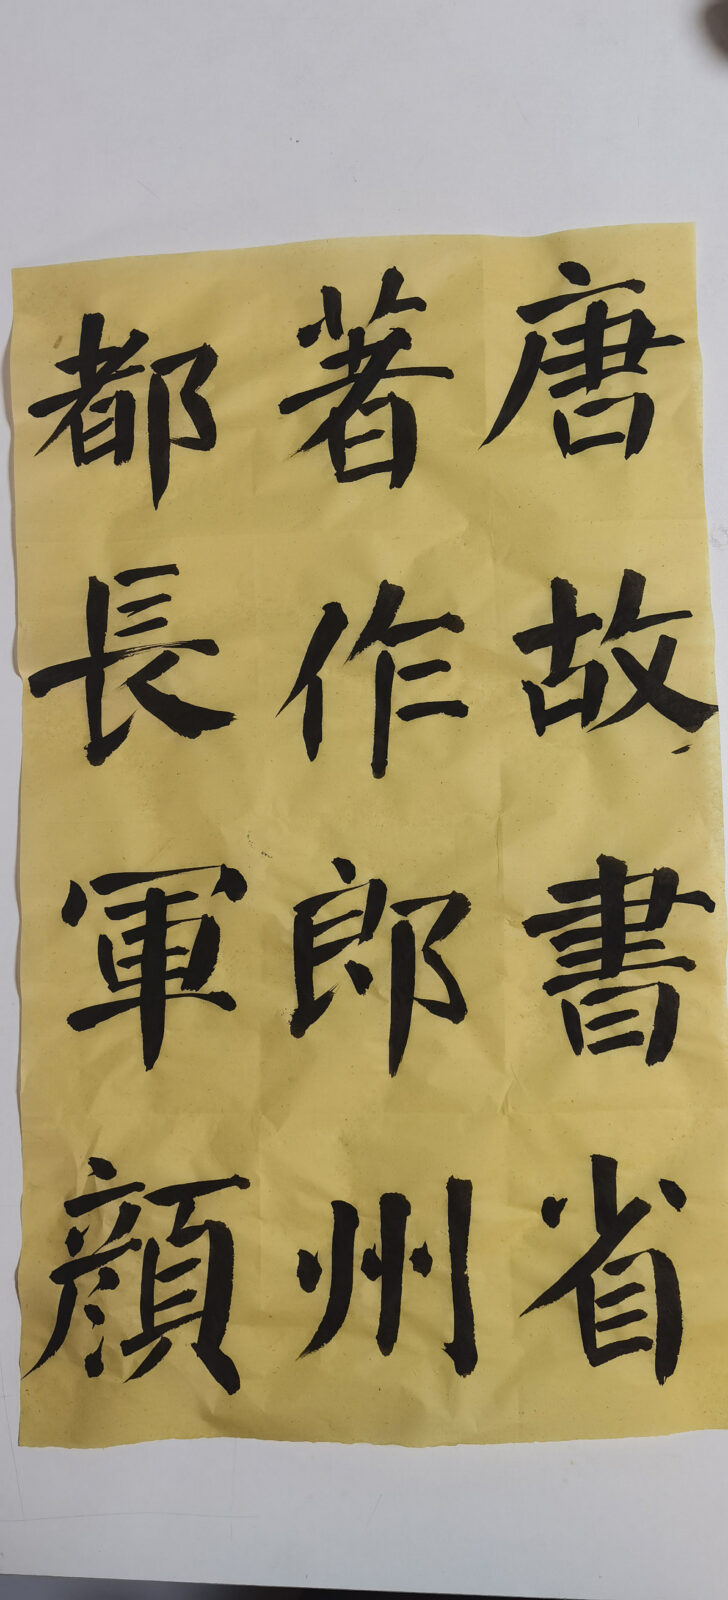 唐故書省
著作郎州
都長軍顏